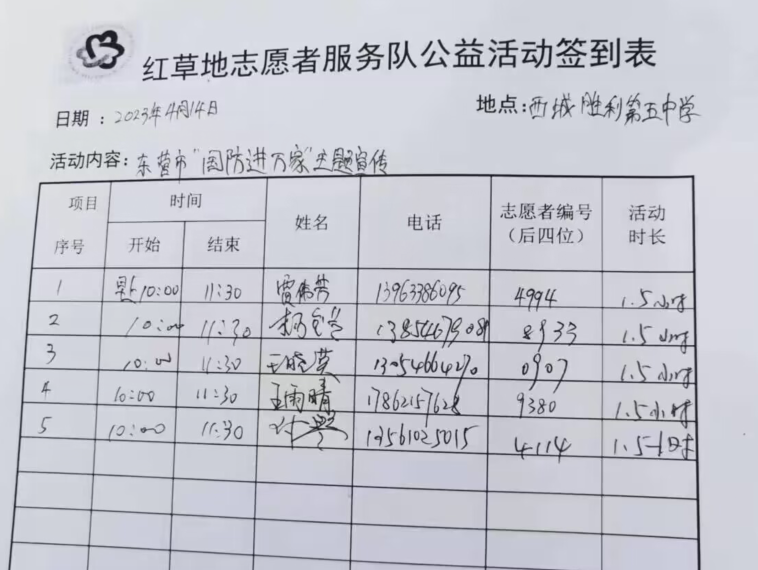 红草地志愿者服务队公益活动签到表
日期：2023年4月14日 地点：西城胜利第五中学
活动内容：东营市"国防进万家"主题宣传
项目 时间 姓名 电话 志愿者编号 活动
序号 开始 结束 （后四位） 时长
1 早上10:00 11:30 13963386095 4994 1.5小时
2 10:00 11:30 8933 1.5小时
3 10:00 11:30 王晓莫 13054664270 0907 1.5小时
4 10:00 11:30 王雨晴 17862157628 9380 1.5小时
5 10:00 11:30 13561025015 4114 1.5小时